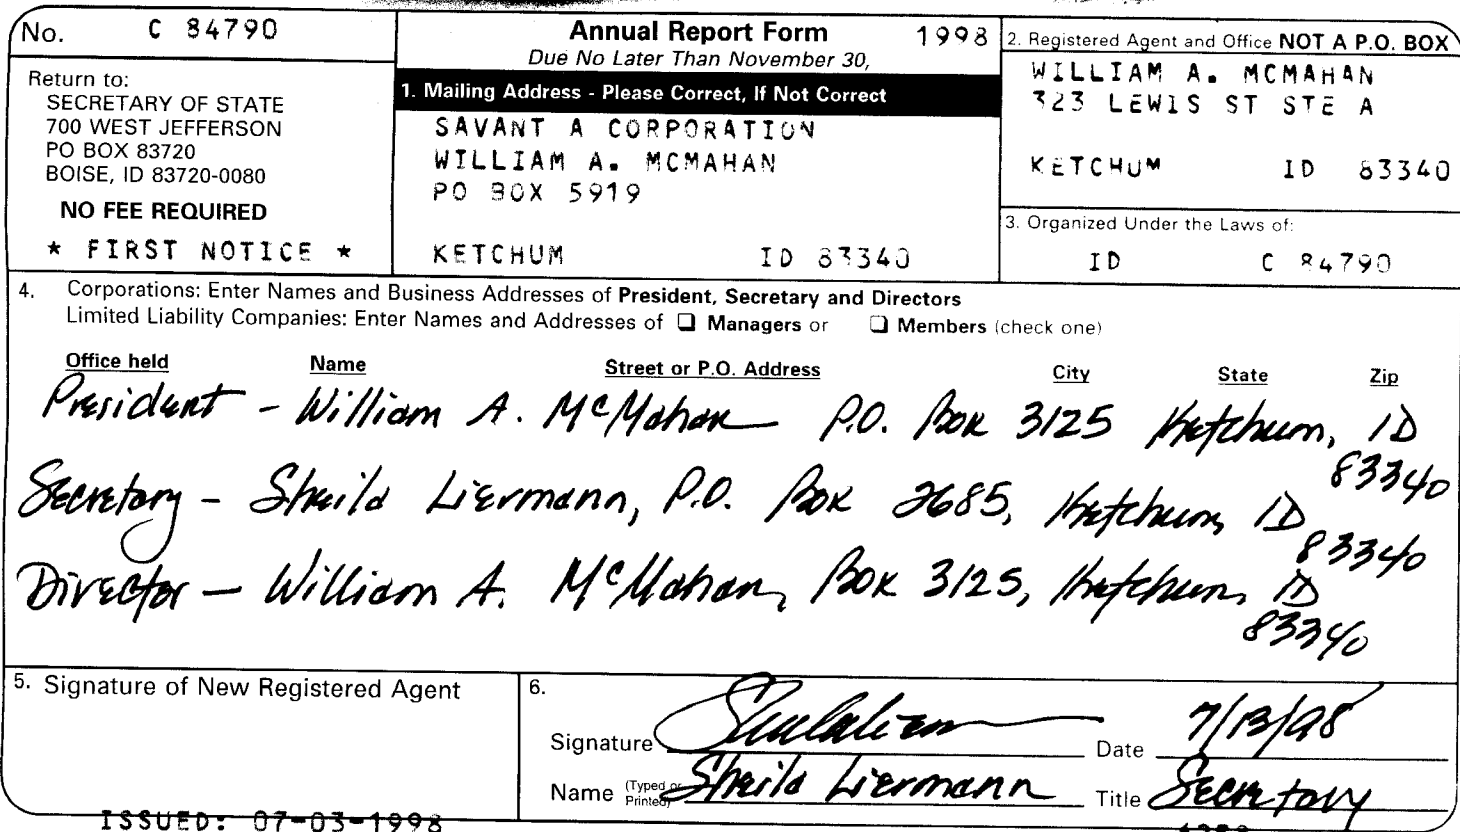 No. C 84790
Return to:
SECRETARY OF STATE
700 WEST JEFFERSON
PO BOX 83720
BOISE, ID 83720-0080
NO FEE REQUIRED
* FIRST NOTICE *
Annual Report Form 1998
Due No Later Than November 30,
1. Mailing Address - Please Correct, If Not Correct
SAVANT A CORPORATION
WILLIAM A. MCMAHAN
PO BOX 5919
KETCHUM ID 83340
2. Registered Agent and Office NOT A P.O. BOX
WILLIAM A. MCMAHAN
323 LEWIS ST STE A
KETCHUM ID 83340
3. Organized Under the Laws of:
ID C 84790
4. Corporations: Enter Names and Business Addresses of President, Secretary and Directors
Limited Liability Companies: Enter Names and Addresses of ❑ Managers or ❑ Members (check one)
Office held Name Street or P.O. Address City State Zip
President - William A. McMahan P.O. Box 3125 Ketchum, ID
83340
Secretary - Sheila Liermann, P.O. Box 2685, Ketchum, ID
83340
Director - William A. McMahan, Box 3125, Ketchum, ID
83340
5. Signature of New Registered Agent
6.
Signature Date 7/13/98
Name (Typed or Printed) Sheila Liermann Title Secretary
ISSUED: 07-03-1998